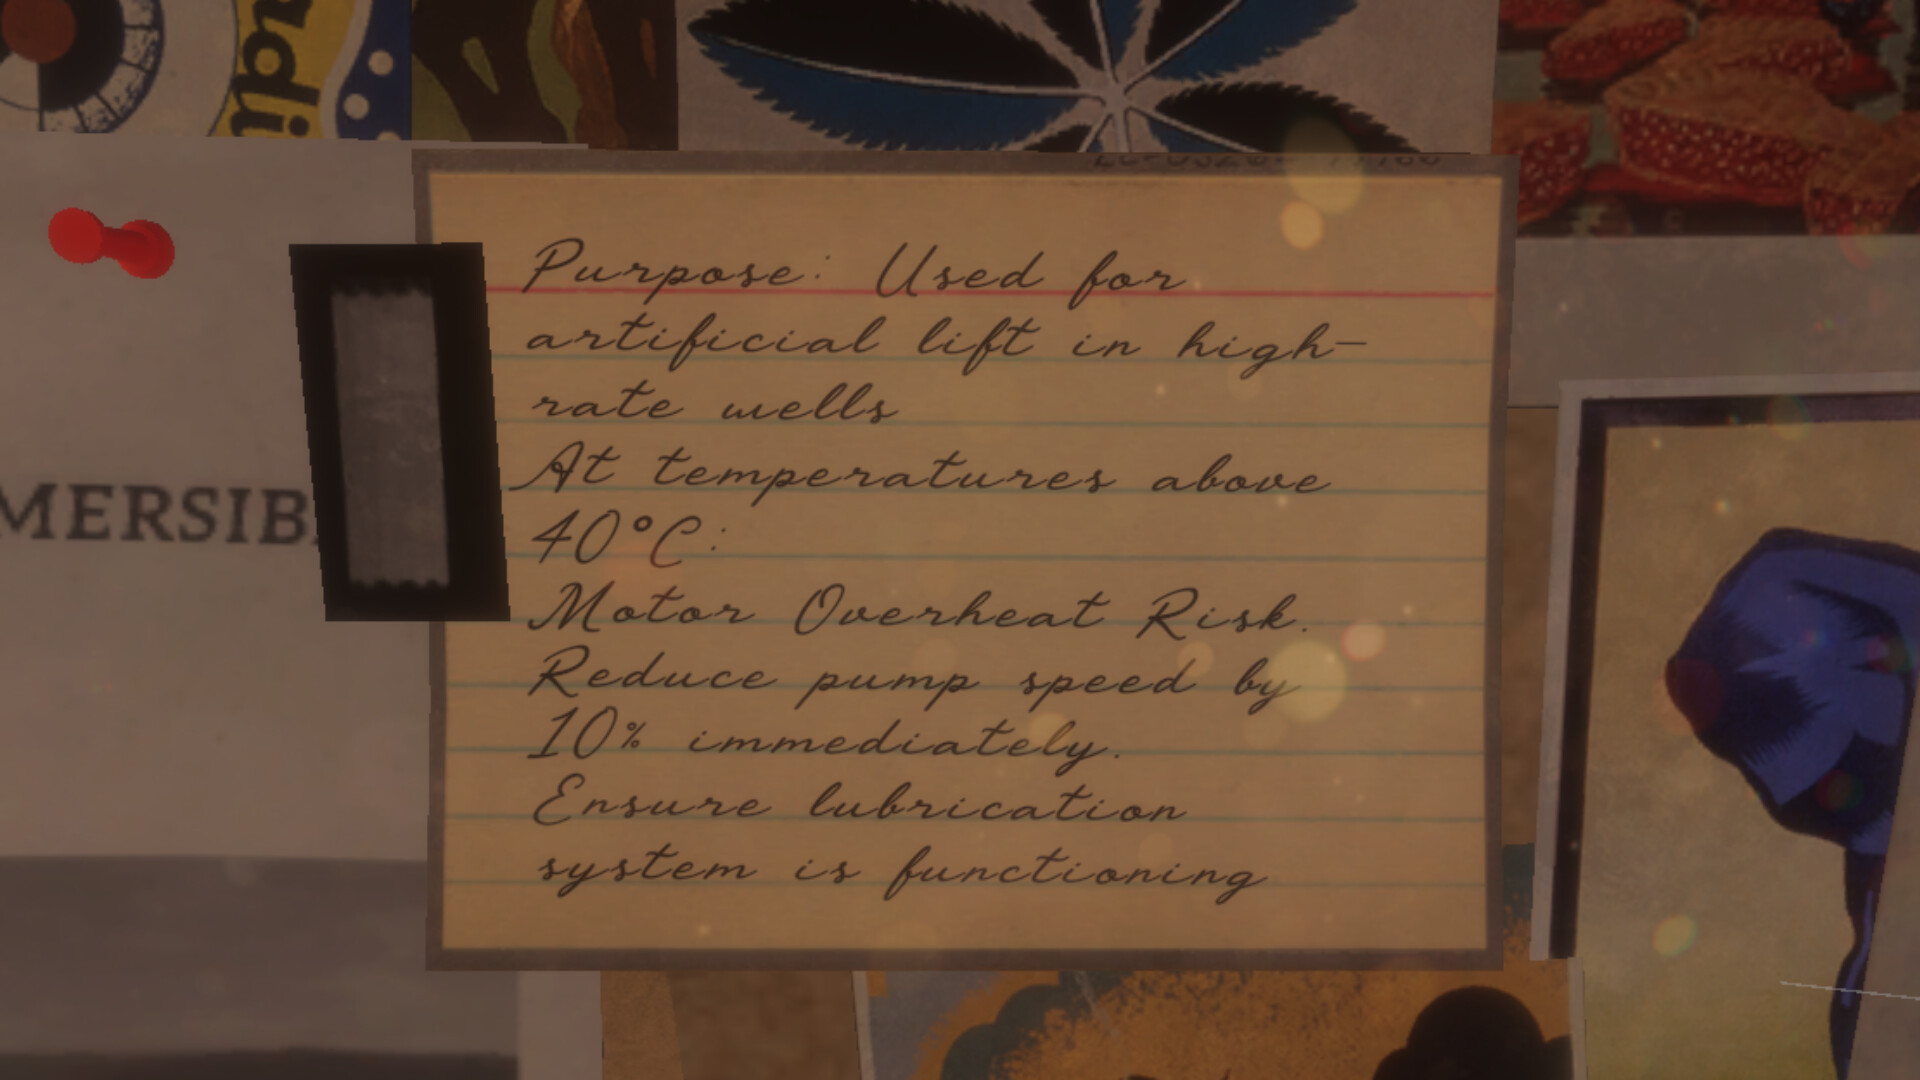 Purpose: Used for
artificial lift in high-
rate wells
At temperatures above
40°C:
Motor Overheat Risk.
Reduce pump speed by
10% immediately.
Ensure lubrication
system is functioning
MERSIB